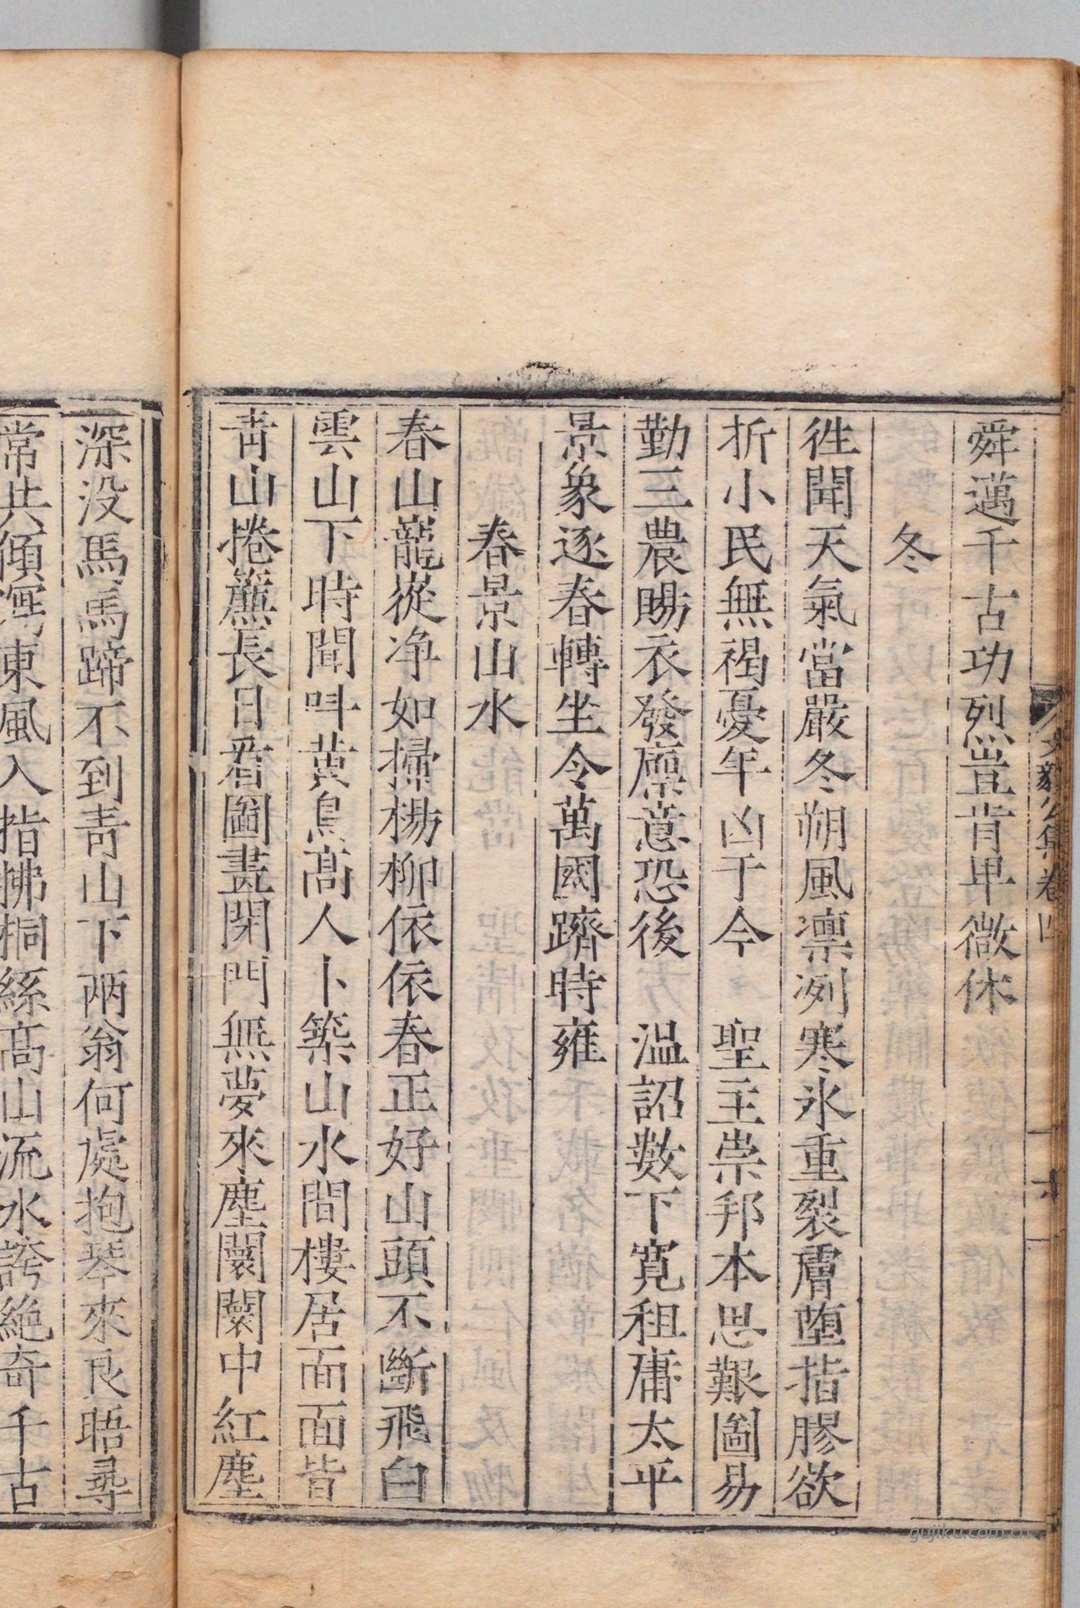 舜邁千古功烈豈肯卑微休
冬
徃聞天氣當嚴冬朔風凛冽寒氷重裂膚堕指膠欲
折小民無褐憂年凶于今 聖主崇邦本思艱圖易
勤三農賜衣發廪意恐後 温詔數下寛租庸太平
景象逐春轉坐令萬國躋時雍
春景山水
春山巃嵸净如掃楊柳依依春正好山頭不斷飛白
雲山下時聞呌黄鳥髙人卜築山水間樓居面面皆
青山捲簾長日看圖畫閉門無夢來塵闤闤中紅塵
深没馬馬蹄不到青山下兩翁何處抱琴來良晤尋
常共傾 東風入指拂桐絲髙山流水誇絶奇千古
文毅公集卷四
六
gujiku.com.cn